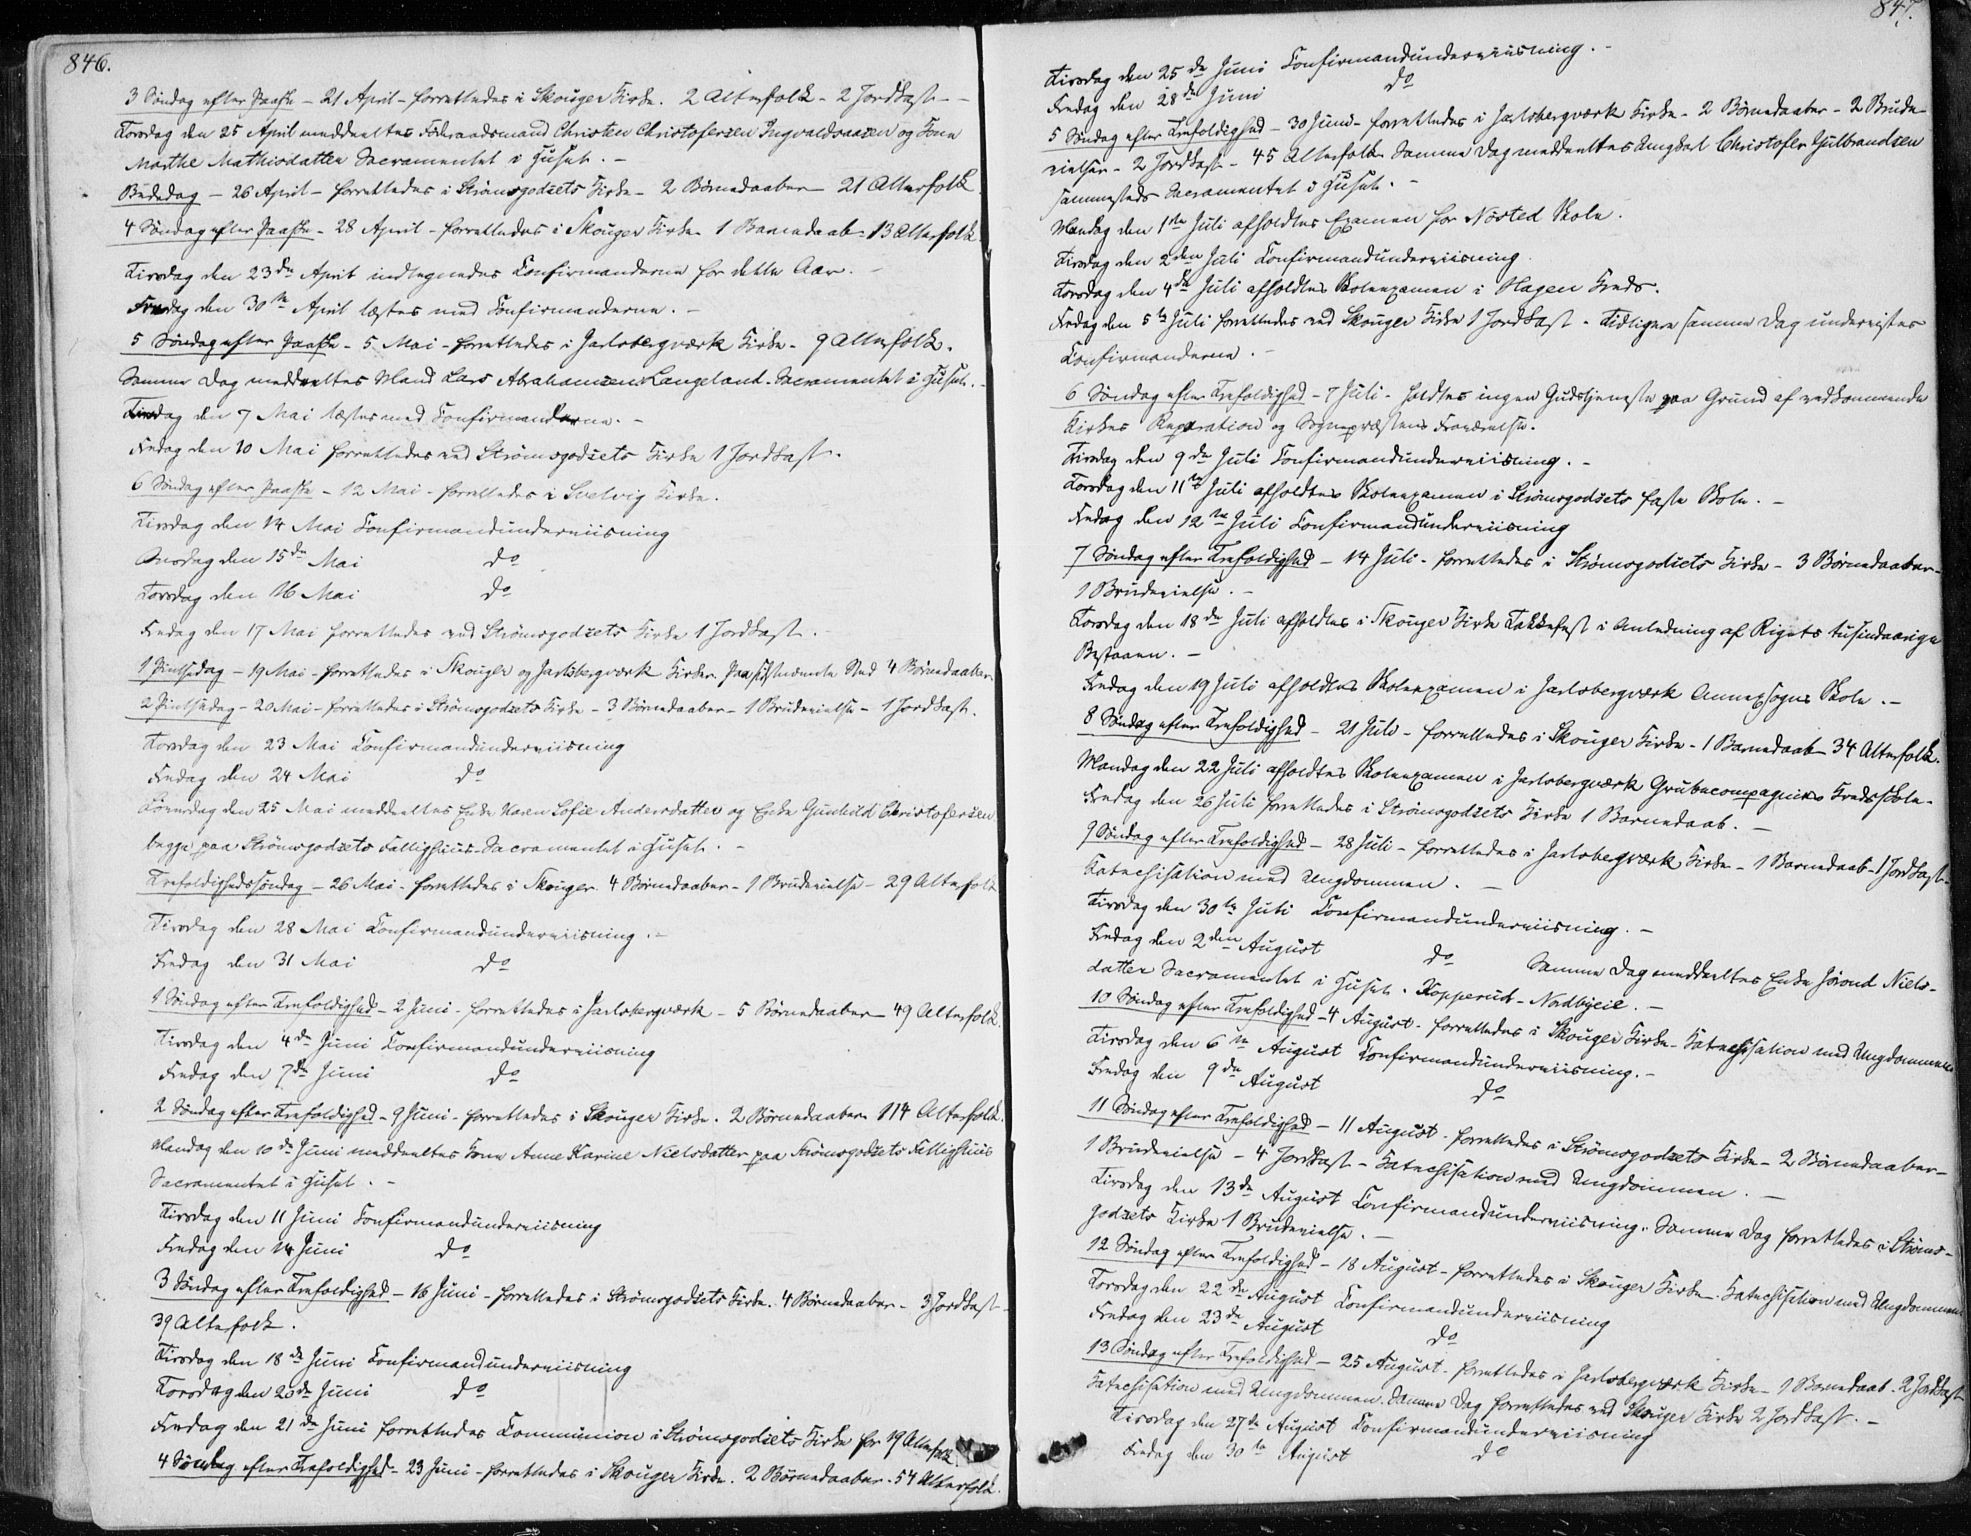 846.
3 Søndag efter Paaske - 21 April - forrettedes i Skouger Kirke. 2 Alterfolk - 2 Jordkast - -
Torsdag den 25 April meddeeltes Føderaadsmand Christen Christofersen Ingvaldsaasen og Kone
Marthe Mathisdatter Sacramentet i Huset. -
Bededag - 26 April - forrettedes i Strømsgodsets Kirke - 2 Børnedaaber - 21 Alterfolk
4 Søndag efter Paaske - 28 April - forrettedes i Skouger Kirke 1 Barnedaab - 13 Alterfolk
Tirsdag den 23de April indtegnedes Confirmanderne for dette Aar. -
den 30te April læstes med Confirmanderne. -
5 Søndag efter Paaske - 5 Mai - forrettedes i Jarlsbergværk Kirke - 9 Alterfolk.
Samme Dag meddeeltes Mand Lars Abrahamsen Langeland Sacramentet i Huset. -
Tirsdag den 7 Mai læstes med Confirmanderne. -
Fredag den 10 Mai forrettedes ved Strømsgodsets Kirke 1 Jordkast.
6 Søndag efter Paaske - 12 Mai - forrettedes i Svelvig Kirke.
Tirsdag den 14 Mai Confirmandunderviisning
Onsdag den 15de Mai do
Torsdag den 16 Mai do
Fredag den 17 Mai forrettedes ved Strømsgodsets Kirke 1 Jordkast.
1 Pintsedag - 19 Mai - forrettedes i Skouger og Jarlsbergværk Kirker. Paa sidstnævnte Sted 4 Børnedaaber
2 Pintsedag - 20 Mai - forrettedes i Strømsgodsets Kirke - 3 Børnedaaber - 1 Brudevielse - 1 Jordkast.
Torsdag den 23 Mai Confirmandunderviisning
Fredag den 24 Mai do
Løverdag den 25 Mai meddeeltes Enke Karen Sofie Andersdatter og Enke Gunhild Christofersen
begge paa Strømsgodsets Fattighuus Sacramentet i Huset. -
Trefoldighedssøndag - 26 Mai - forrettedes i Skouger. 4 Børnedaaber - 1 Brudevielse - 29 Alterfolk
Tirsdag den 28 Mai Confirmandunderviisning. -
Fredag den 31 Mai do
1 Søndag efter Trefoldighed - 2 Juni - forrettedes i Jarlsbergværk - 5 Børnedaaber - 49 Alterfolk.
Tirsdag den 4de Juni Confirmandunderviisning
Fredag den 7de Juni do
2 Søndag efter Trefoldighed - 9 Juni - forrettedes i Skouger Kirke. 2 Børnedaaber 114 Alterfolk.
Mandag den 10de Juni meddeeltes Kone Anne Karine Nielsdatter paa Strømsgodsets Fattighuus
Sacramentet i Huset. -
Tirsdag den 11 Juni Confirmandunderviisning
Fredag den 14 Juni do
3 Søndag efter Trefoldighed - 16 Juni - forrettedes i Strømsgodsets Kirke. 4 Børnedaaber - 3 Jordkast -
39 Alterfolk.
Tirsdag den 18de Juni Confirmandunderviisning
Torsdag den 20de Juni do
Fredag den 21de Juni forrettedes Communion i Strømsgodsets Kirke for 19 Alterfolk
4 Søndag efter Trefoldighed - 23 Juni - forrettedes i Skouger Kirke. 2 Børnedaaber - 54 Alterfolk.
847.
Tirsdag den 25de Juni Confirmandunderviisning. -
Fredag den 28de Juni do
5 Søndag efter Trefoldighed - 30 Juni - forrettedes i Jarlsbergværk Kirke - 2 Børnedaaber - 2 Brude-
vielser - 2 Jordkast - 45 Alterfolk. Samme Dag meddeeltes Ungkarl Christofer Gulbrandsen
sammesteds Sacramentet i Huset. -
Mandag den 1ste Juli afholdtes Examen for Nøsted Skole.
Tirsdag den 2den Juli Confirmandunderviisning.
Torsdag den 4de Juli afholdtes Skoleexamen i Hagen Kreds.
Fredag den 5te Juli forrettedes ved Skouger Kirke 1 Jordkast - Tidligere samme Dag undervistes
Confirmanderne. -
6 Søndag efter Trefoldighed - 7 Juli - holdtes ingen Gudstjeneste paa Grund af vedkommende
Kirkes Reparation og Sognepræstens Fraværelse.
Tirsdag den 9de Juli Confirmandunderviisning. -
Torsdag den 11te Juli afholdtes Skoleexamen i Strømsgodsets faste Skole. -
Fredag den 12te Juli Confirmandunderviisning
7 Søndag efter Trefoldighed - 14 Juli - forrettedes i Strømsgodsets Kirke - 3 Børnedaaber -
1 Brudevielse. -
Torsdag den 18de Juli afholdtes i Skouger Kirke Takkefest i Anledning af Rigets tusindaarige
Bestaaen. -
Fredag den 19 Juli afholdtes Skoleexamen i Jarlsbergværk Annexsogns Skole. -
8 Søndag efter Trefoldighed - 21 Juli - forrettedes i Skouger Kirke - 1 Barnedaab 34 Alterfolk.
Mandag den 22 Juli afholdtes Skoleexamen i Jarlsbergværk Grubecompagnies Kredsskole -
Fredag den 26 Juli forrettedes i Strømsgodsets Kirke 1 Barnedaab. -
9 Søndag efter Trefoldighed - 28 Juli - forrettedes i Jarlsbergværk Kirke - 1 Barnedaab - 1 Jordkast -
Katechisation med Ungdommen. -
Tirsdag den 30te Juli Confirmandunderviisning. -
Fredag den 2den August do Samme Dag meddeeltes Enke Jørond Niels-
datter Sacramentet i Huset. Kopperud - Nordbyeie. -
10 Søndag efter Trefoldighed - 4 August - forrettedes i Skouger Kirke - Katechisation med Ungdommen
Tirsdag den 6te August Confirmandunderviisning. -
Fredag den 9de August do
11 Søndag efter Trefoldighed - 11 August - forrettedes i Strømsgodsets Kirke - 2 Børnedaaber -
1 Brudevielse - 4 Jordkast - Katechisation med Ungdommen. -
Tirsdag den 13de August Confirmandunderviisning. Samme Dag forrettedes i Strøms-
godsets Kirke 1 Brudevielse. -
12 Søndag efter Trefoldighed - 18 August - forrettedes i Skouger Kirke - Katechisation med Ungdommen
Torsdag den 22de August Confirmandunderviisning
Fredag den 23de August do
13 Søndag efter Trefoldighed - 25 August - forrettedes i Jarlsbergværk Kirke - 1 Barnedaab - 2 Jordkast
Katechisation med Ungdommen. Samme Dag forrettedes ved Skouger Kirke 2 Jordkast. -
Tirsdag den 27de August Confirmandunderviisning
Fredag den 30te August do